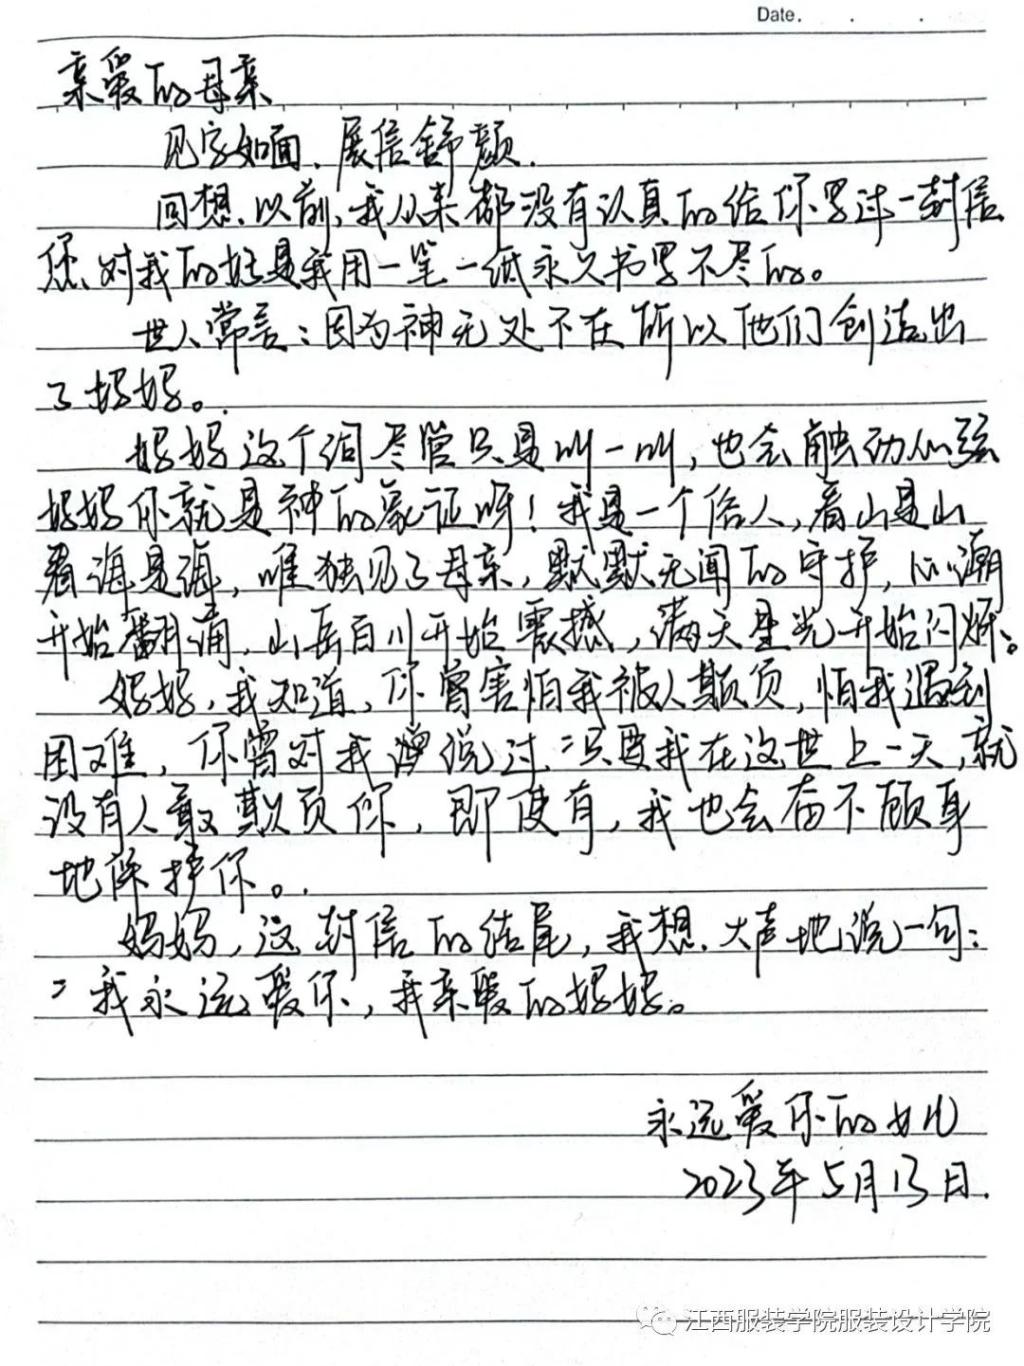 Date. . .
亲爱的母亲
见字如面.展信舒颜.
回想.以前,我从来都没有认真的给你写过一封信
您.对我的好是我用一笔一纸永久书写不尽的。
世人常言:因为神无处不在所以他们创造出
了妈妈。
妈妈这个词尽管只是叫一叫,也会触动心弦
妈妈你就是神的象征呀!我是一个俗人,看山是山
看海是海,唯独见了母亲,默默无闻的守护,心潮
开始翻涌,山岳百川开始震撼,满天星光开始闪烁。
妈妈,我知道,你曾害怕我被人欺负,怕我遇到
困难,你曾对我说过:只要我在这世上一天,就
没有人敢欺负你,即使有,我也会奋不顾身
地保护你。
妈妈,这封信的结尾,我想.大声地说一句:
"我永远爱你,我亲爱的妈妈。
永远爱你的女儿
2023年5月13日.
江西服装学院服装设计学院